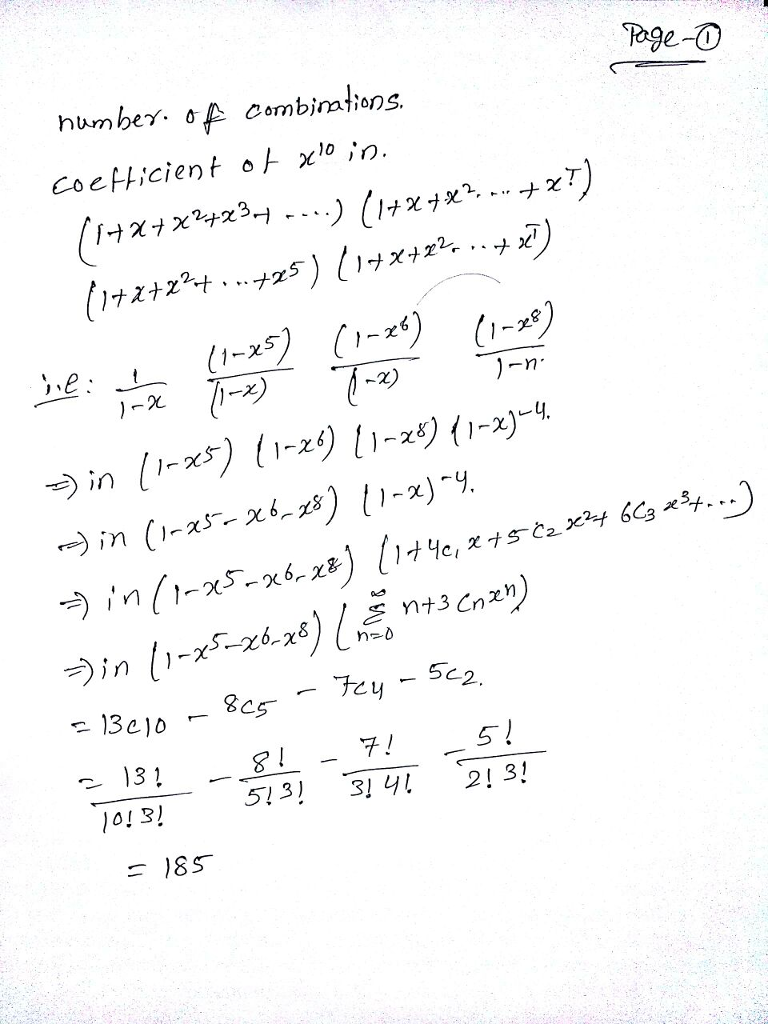 Page-①
number. of combinations.
coefficient of x¹⁰ in.
(1+x+x²+x³+ ....) (1+x+x².... +x⁷)
(1+x+x²+...+x5) (1+x+x²...+x⁷)
i.e: 1/1-x (1-x5)/(1-x) (1-x⁶)/(1-x) (1-x⁸)/1-n.
⇒ in (1-x5) (1-x6) (1-x8) (1-x)-4.
⇒ in (1-x5-x6-x8) (1-x)-4.
⇒ in (1-x5-x6-x8) (1+4c₁ x+5c₂ x²+ 6C₃ x³+...)
⇒ in (1-x5-x6-x8) (∞Σn=0 n+3 Cnxn)
= 13c10 - 8c5 - 7c4 - 5c2.
= 13!/10!3! - 8!/5!3! - 7!/3!4! - 5!/2!3!
= 185